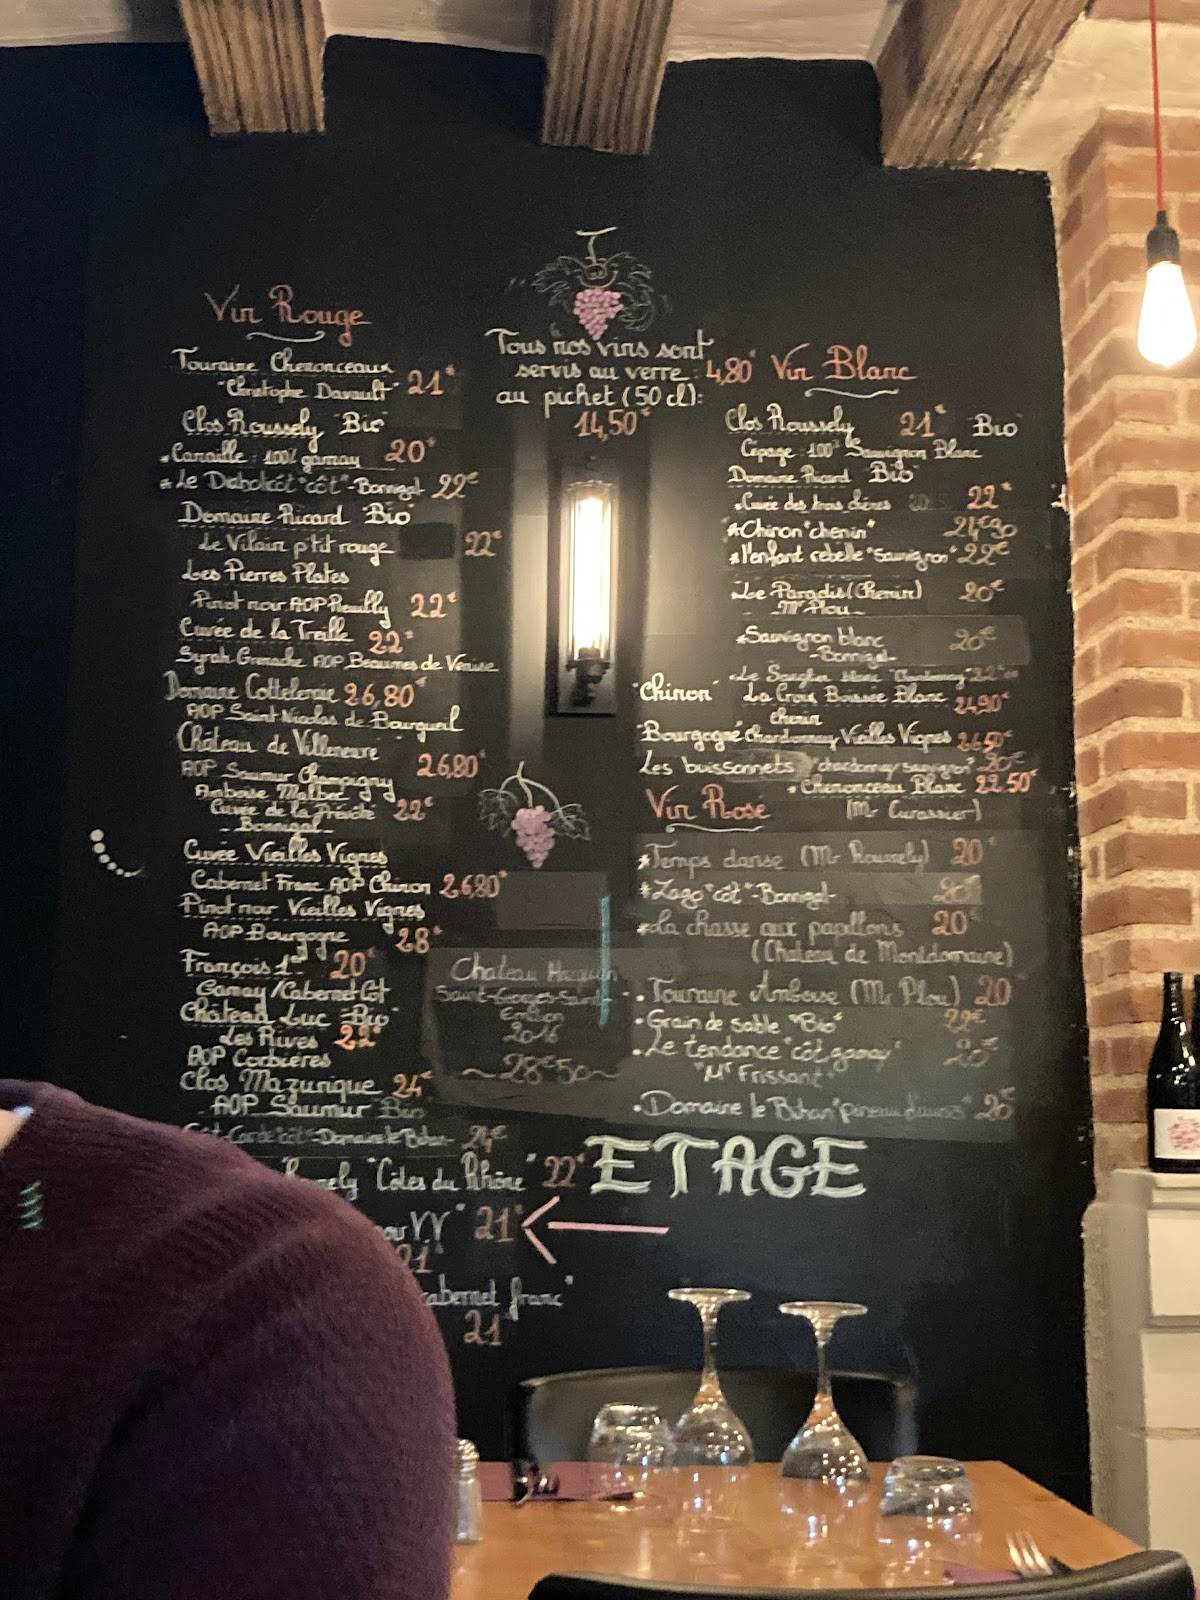 Vin Rouge
Touraine Chenonceaux
"Christophe Davault" 21€
Clos Roussely "Bio"
*Canaille : 100% gamay 20€
* Le Diabolicôt "côt" - Bonnigal 22€
Domaine Ricard "Bio"
Le Vilain p'tit rouge 22€
Les Pierres Plates
Pinot noir AOP Reuilly 22€
Cuvée de la Treille 22€
Syrah Grenache AOP Beaumes de Venise
Domaine Cotteleraie 26,80€
AOP Saint Nicolas de Bourgueil
Château de Villeneuve
AOP Saumur Champigny 26,80€
Amboise Malbec
Cuvée de la 22€
- Bonnigal -
Cuvée Vieilles Vignes
Cabernet Franc AOP Chinon 26,80€
Pinot noir Vieilles Vignes
AOP Bourgogne 28€
François 1er 20€
Gamay/Cabernet Cot
Château Luc "Bio"
Les Rives 22€
AOP Corbières
Clos Mazurique 24€
AOP Saumur Bio
"côt" - Domaine le Bihan - 24€
"Côtes du Rhône" 22€
V.V" 21€
21€
cabernet franc"
21
Tous nos vins sont
servis au verre : 4,80€
au pichet (50 cl) :
14,50€
Chateau
Saint-Georges-Saint-
Emilion
2016
~ 28€50 ~
Vin Blanc
Clos Roussely 21€ "Bio"
Cépage : 100% Sauvignon Blanc
Domaine Ricard "Bio"
*Cuvée des trois chênes 22€
*Chinon "chenin" 24€90
*l'enfant rebelle "Sauvignon" 22€
*Le Paradis (Chenin) 20€
- Mr Plou -
*Sauvignon blanc 20€
- Bonnigal -
*Le Sanglier blanc "Chardonnay" 22€
"Chinon" La Croix Boissée Blanc 24,90€
chenin
"Bourgogne" Chardonnay Vieilles Vignes 26,50€
Les buissonnets "chardonnay sauvignon" 20€
* Chenonceau Blanc 22.50€
(Mr Curassier)
Vin Rose
*Temps danse (Mr Roussely) 20€
* Zazo "côt" - Bonnigal - 20€
*La chasse aux papillons 20€
(Chateau de Montdomaine)
• Touraine Amboise (Mr Plou) 20€
• Grain de sable "Bio" 22€
• Le tendance "côt, gamay" 20€
"Mr Frissant"
• Domaine le Bihan "pineau d'aunis" 20€
ETAGE